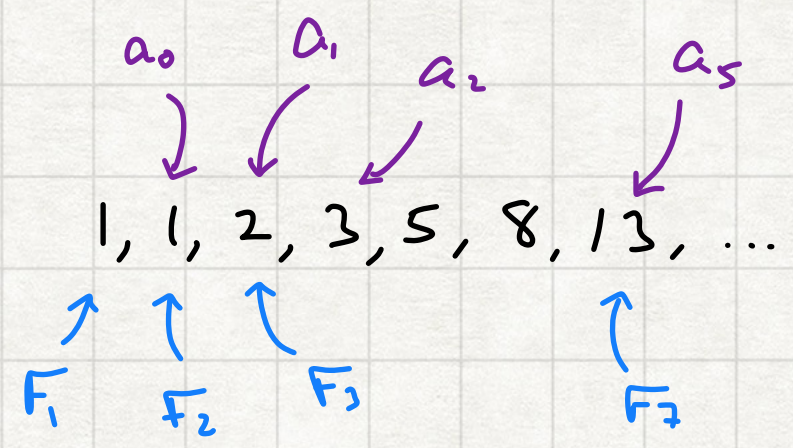 a₀ a₁ a₂ a₅
1, 1, 2, 3, 5, 8, 13, ...
F₁ F₂ F₃ F₇